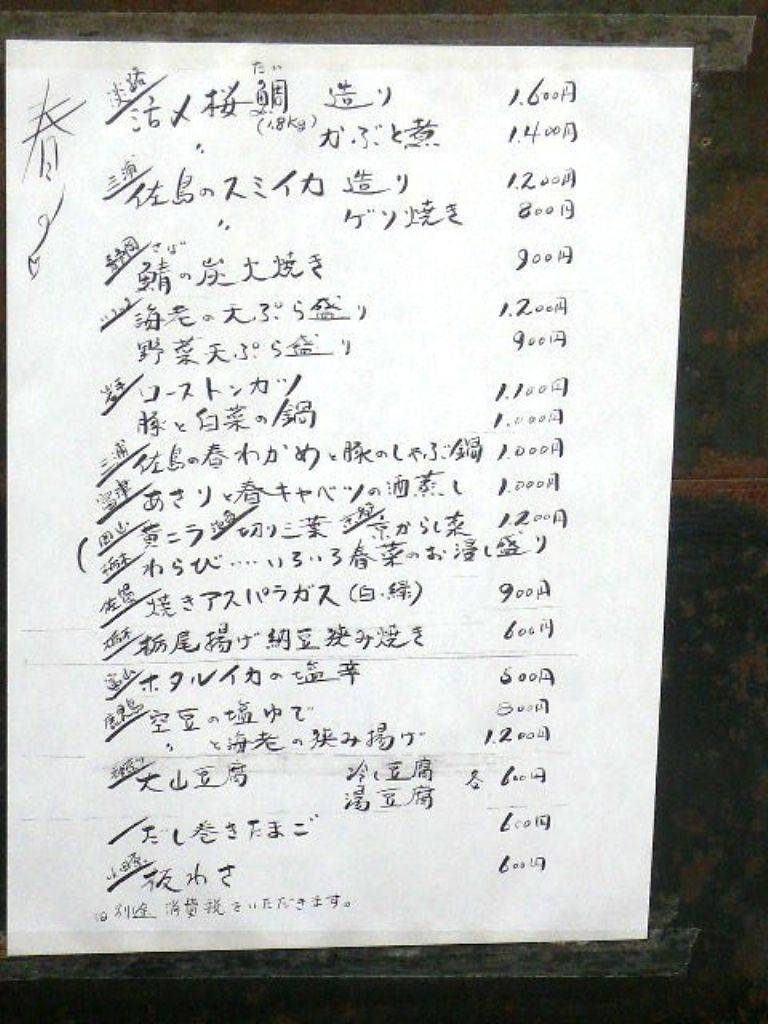 春
淡路 活〆桜鯛 たい (1.8kg) 造り 1.600円
〃 かぶと煮 1.400円
三浦 佐島のスミイカ 造り 1.200円
〃 ゲソ焼き 800円
静岡 鯖の炭火焼き さば 900円
海老の天ぷら盛り 1.200円
野菜天ぷら盛り 900円
岩手 ローストンカツ 1.100円
豚と白菜の鍋 1.000円
三浦 佐島の春わかめと豚のしゃぶ鍋 1.000円
富津 あさりと春キャベツの酒蒸し 1.000円
岡山 黄ニラ 切り三葉 京からし菜 1.200円
栃木 わらび‥‥いろいろ春菜のお浸し盛り
佐賀 焼きアスパラガス(白・緑) 900円
栃尾揚げ納豆挟み焼き 600円
富山 ホタルイカの塩辛 500円
鹿児島 空豆の塩ゆで 800円
〃 と海老の挟み揚げ 1.200円
大山豆腐 冷し豆腐 各 600円
湯豆腐
だし巻きたまご 600円
小田原 板わさ 600円
別途 消費税をいただきます。